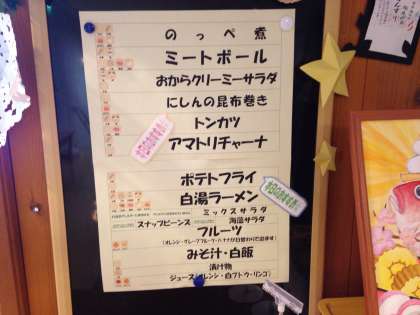 のっぺ煮
ミートボール
おからクリーミーサラダ
にしんの昆布巻き
トンカツ
アマトリチャーナ
ポテトフライ
白湯ラーメン
ミックスサラダ
スナップビーンズ 海藻サラダ
フルーツ
(オレンジ・グレープフルーツ・バナナが日替わりで出ます)
みそ汁・白飯
漬け物
ジュース(オレンジ・白ブドウ・リンゴ)